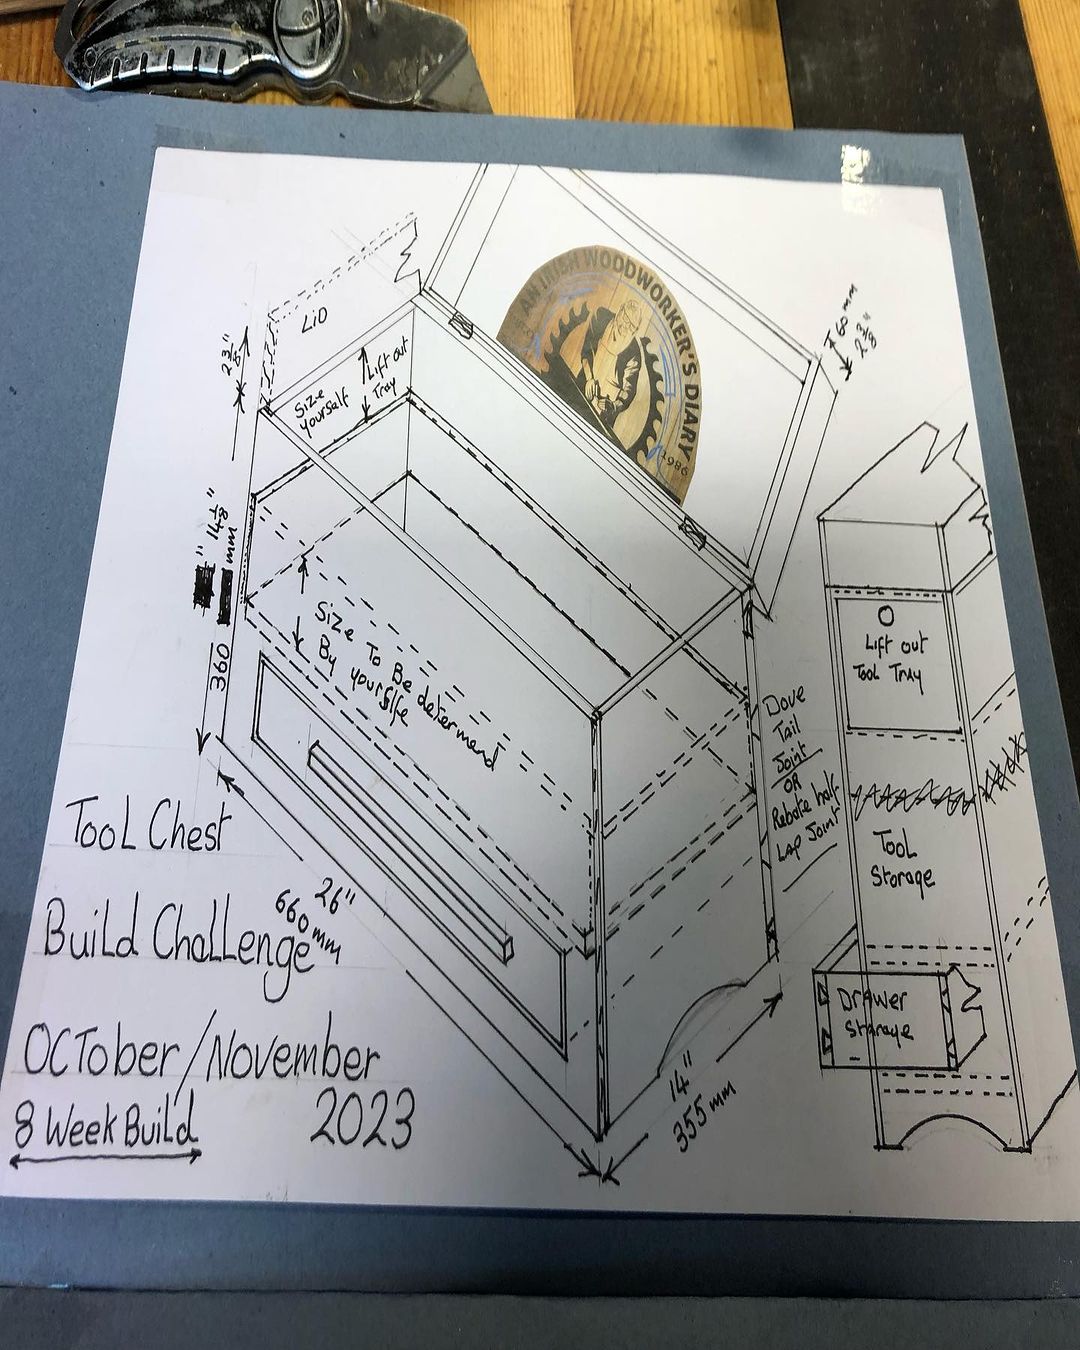 AN IRISH WOODWORKER'S DIARY
1986
LiD
2 3/8"
Size
yourself
Lift out
Tray
60 mm
2 3/8"
14 1/8"
360 mm
Size To Be determend
By yourslfe
Dove
Tail
Joint
OR
Rebate half
Lap Joint
Lift out
Tool Tray
Tool
Storage
Drawer
Storage
26"
660 mm
14"
355 mm
Tool Chest
Build Challenge
October/November
2023
8 Week Build